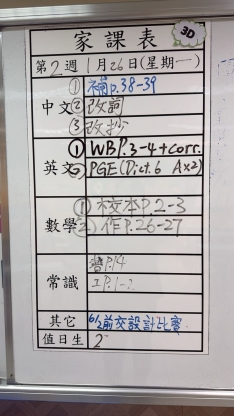 家課表
3D
第2週 1月26日(星期一)
中文 ①補p.38-39
②改詞
③改抄
英文 ①WB P.3-4+corr.
②PGE(Dict.6 A×2)
數學 ①校本P.2-3
②作P.26-27
常識 P.14
工P.1-2
其它 6/2前交設計比賽
值日生 2